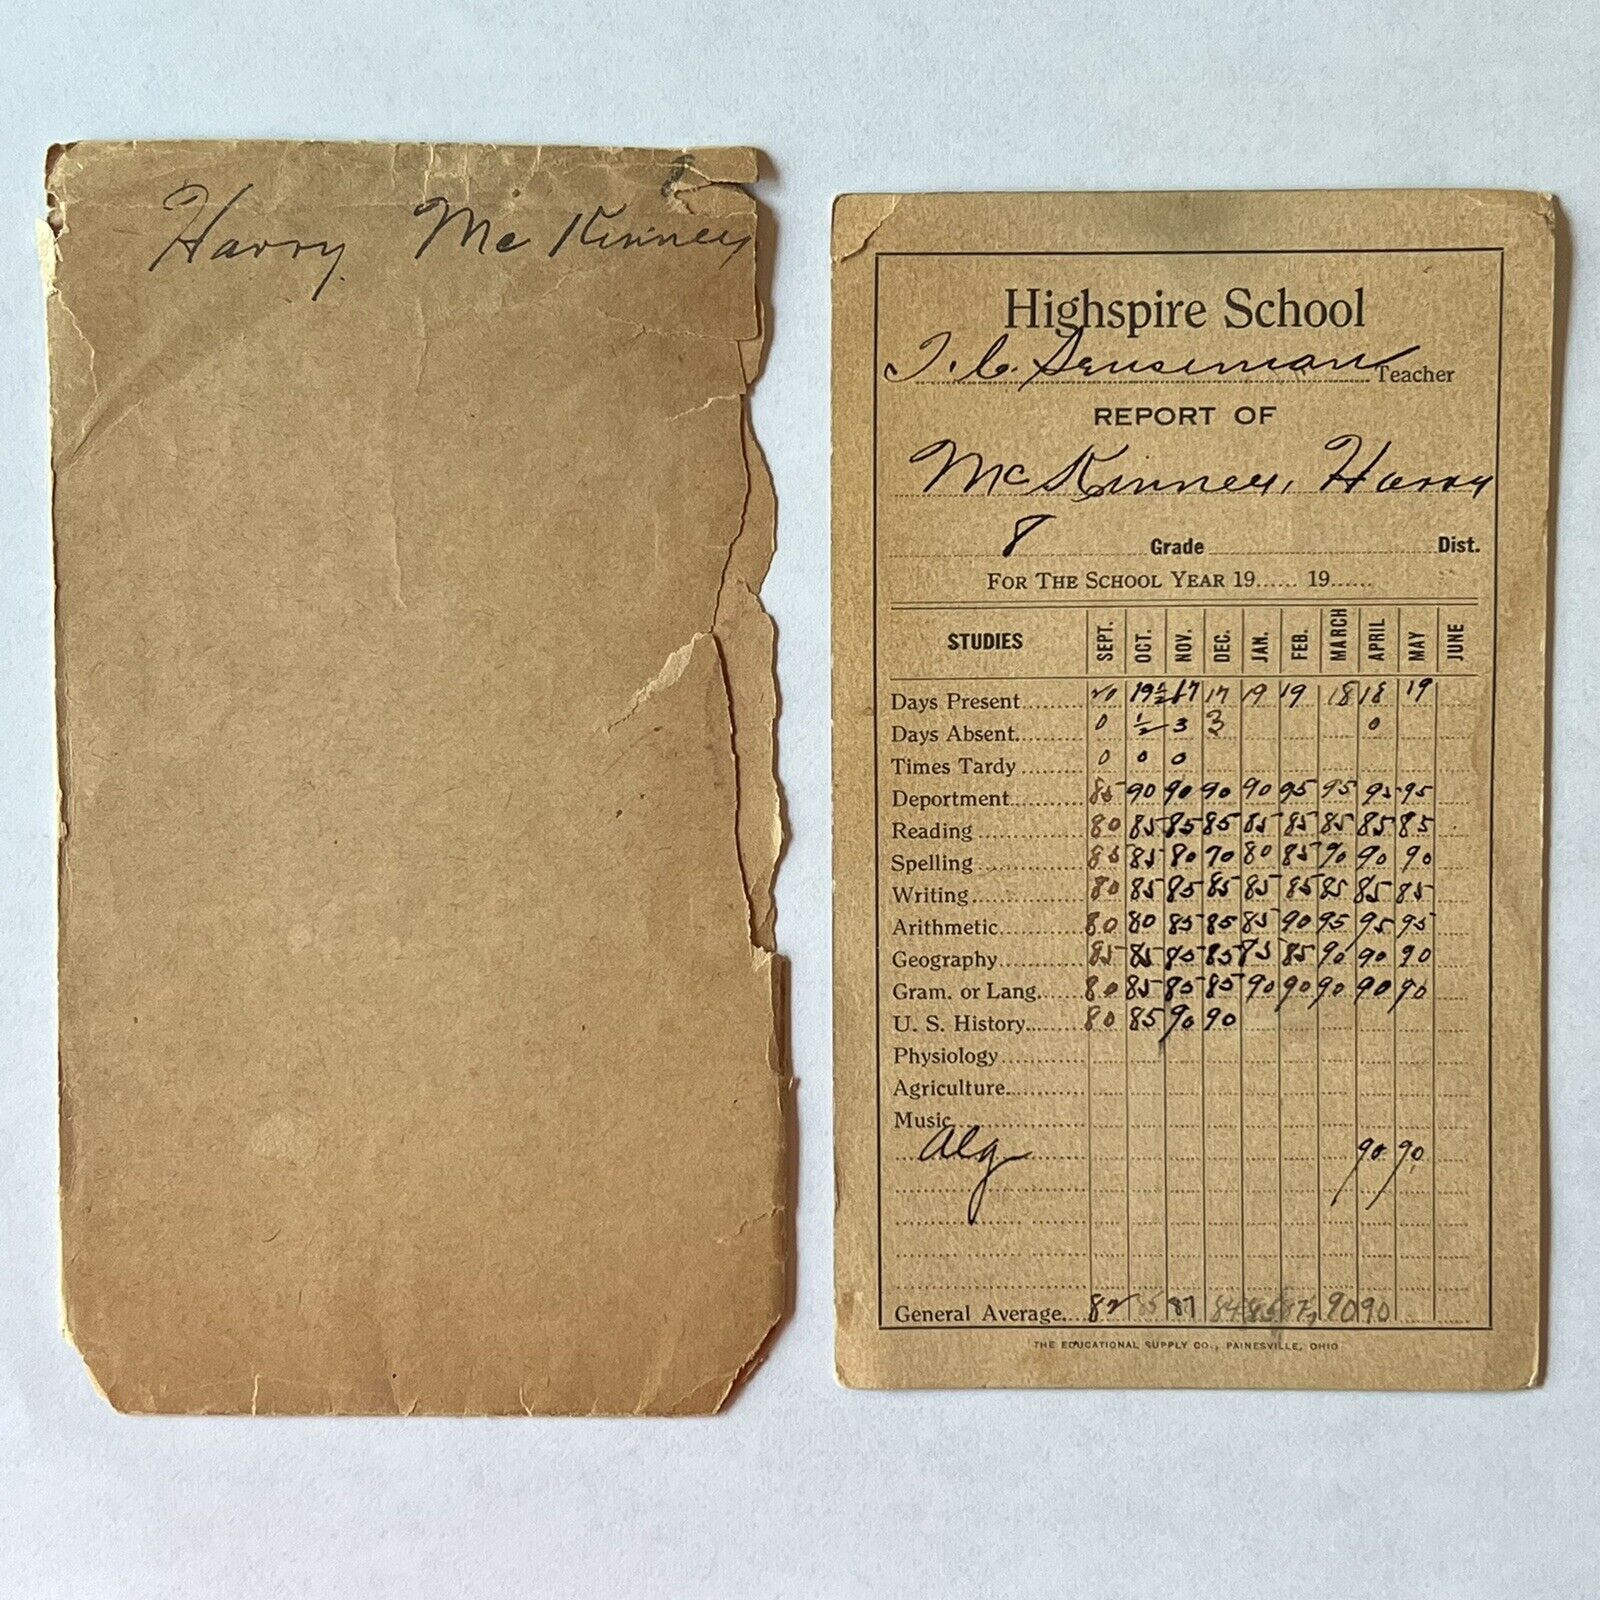 Harry McKinney
Highspire School
Teacher
REPORT OF
McKinney, Harry
8 Grade Dist.
FOR THE SCHOOL YEAR 19...... 19......
STUDIES SEPT. OCT. NOV. DEC. JAN. FEB. MARCH APRIL MAY JUNE
Days Present 20 19 1/2 17 17 19 19 18 18 19
Days Absent 0 1/2 3 3 0
Times Tardy 0 0 0
Deportment 85 90 90 90 90 95 95 95 95
Reading 80 85 85 85 85 85 85 85 85
Spelling 85 85 80 70 80 85 90 90 90
Writing 80 85 85 85 85 85 85 85 85
Arithmetic 80 80 85 85 85 90 95 95 95
Geography 85 85 85 85 85 85 90 90 90
Gram. or Lang. 80 85 85 85 90 90 90 90 90
U. S. History 80 85 90 90
Physiology
Agriculture
Music
Alg 90 90
General Average 82 85 87 84 85 87 90 90
THE EDUCATIONAL SUPPLY CO., PAINESVILLE, OHIO